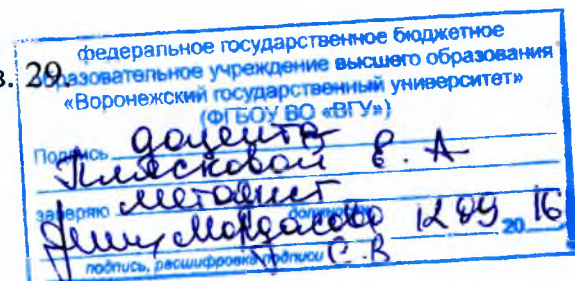 в. 29.
федеральное государственное бюджетное
образовательное учреждение высшего образования
«Воронежский государственный университет»
(ФГБОУ ВО «ВГУ»)
Подпись доцента
Плясковой Е. А
заверяю методист
должность
Мордасова 12 09 20 16
подпись, расшифровка подписи С.В